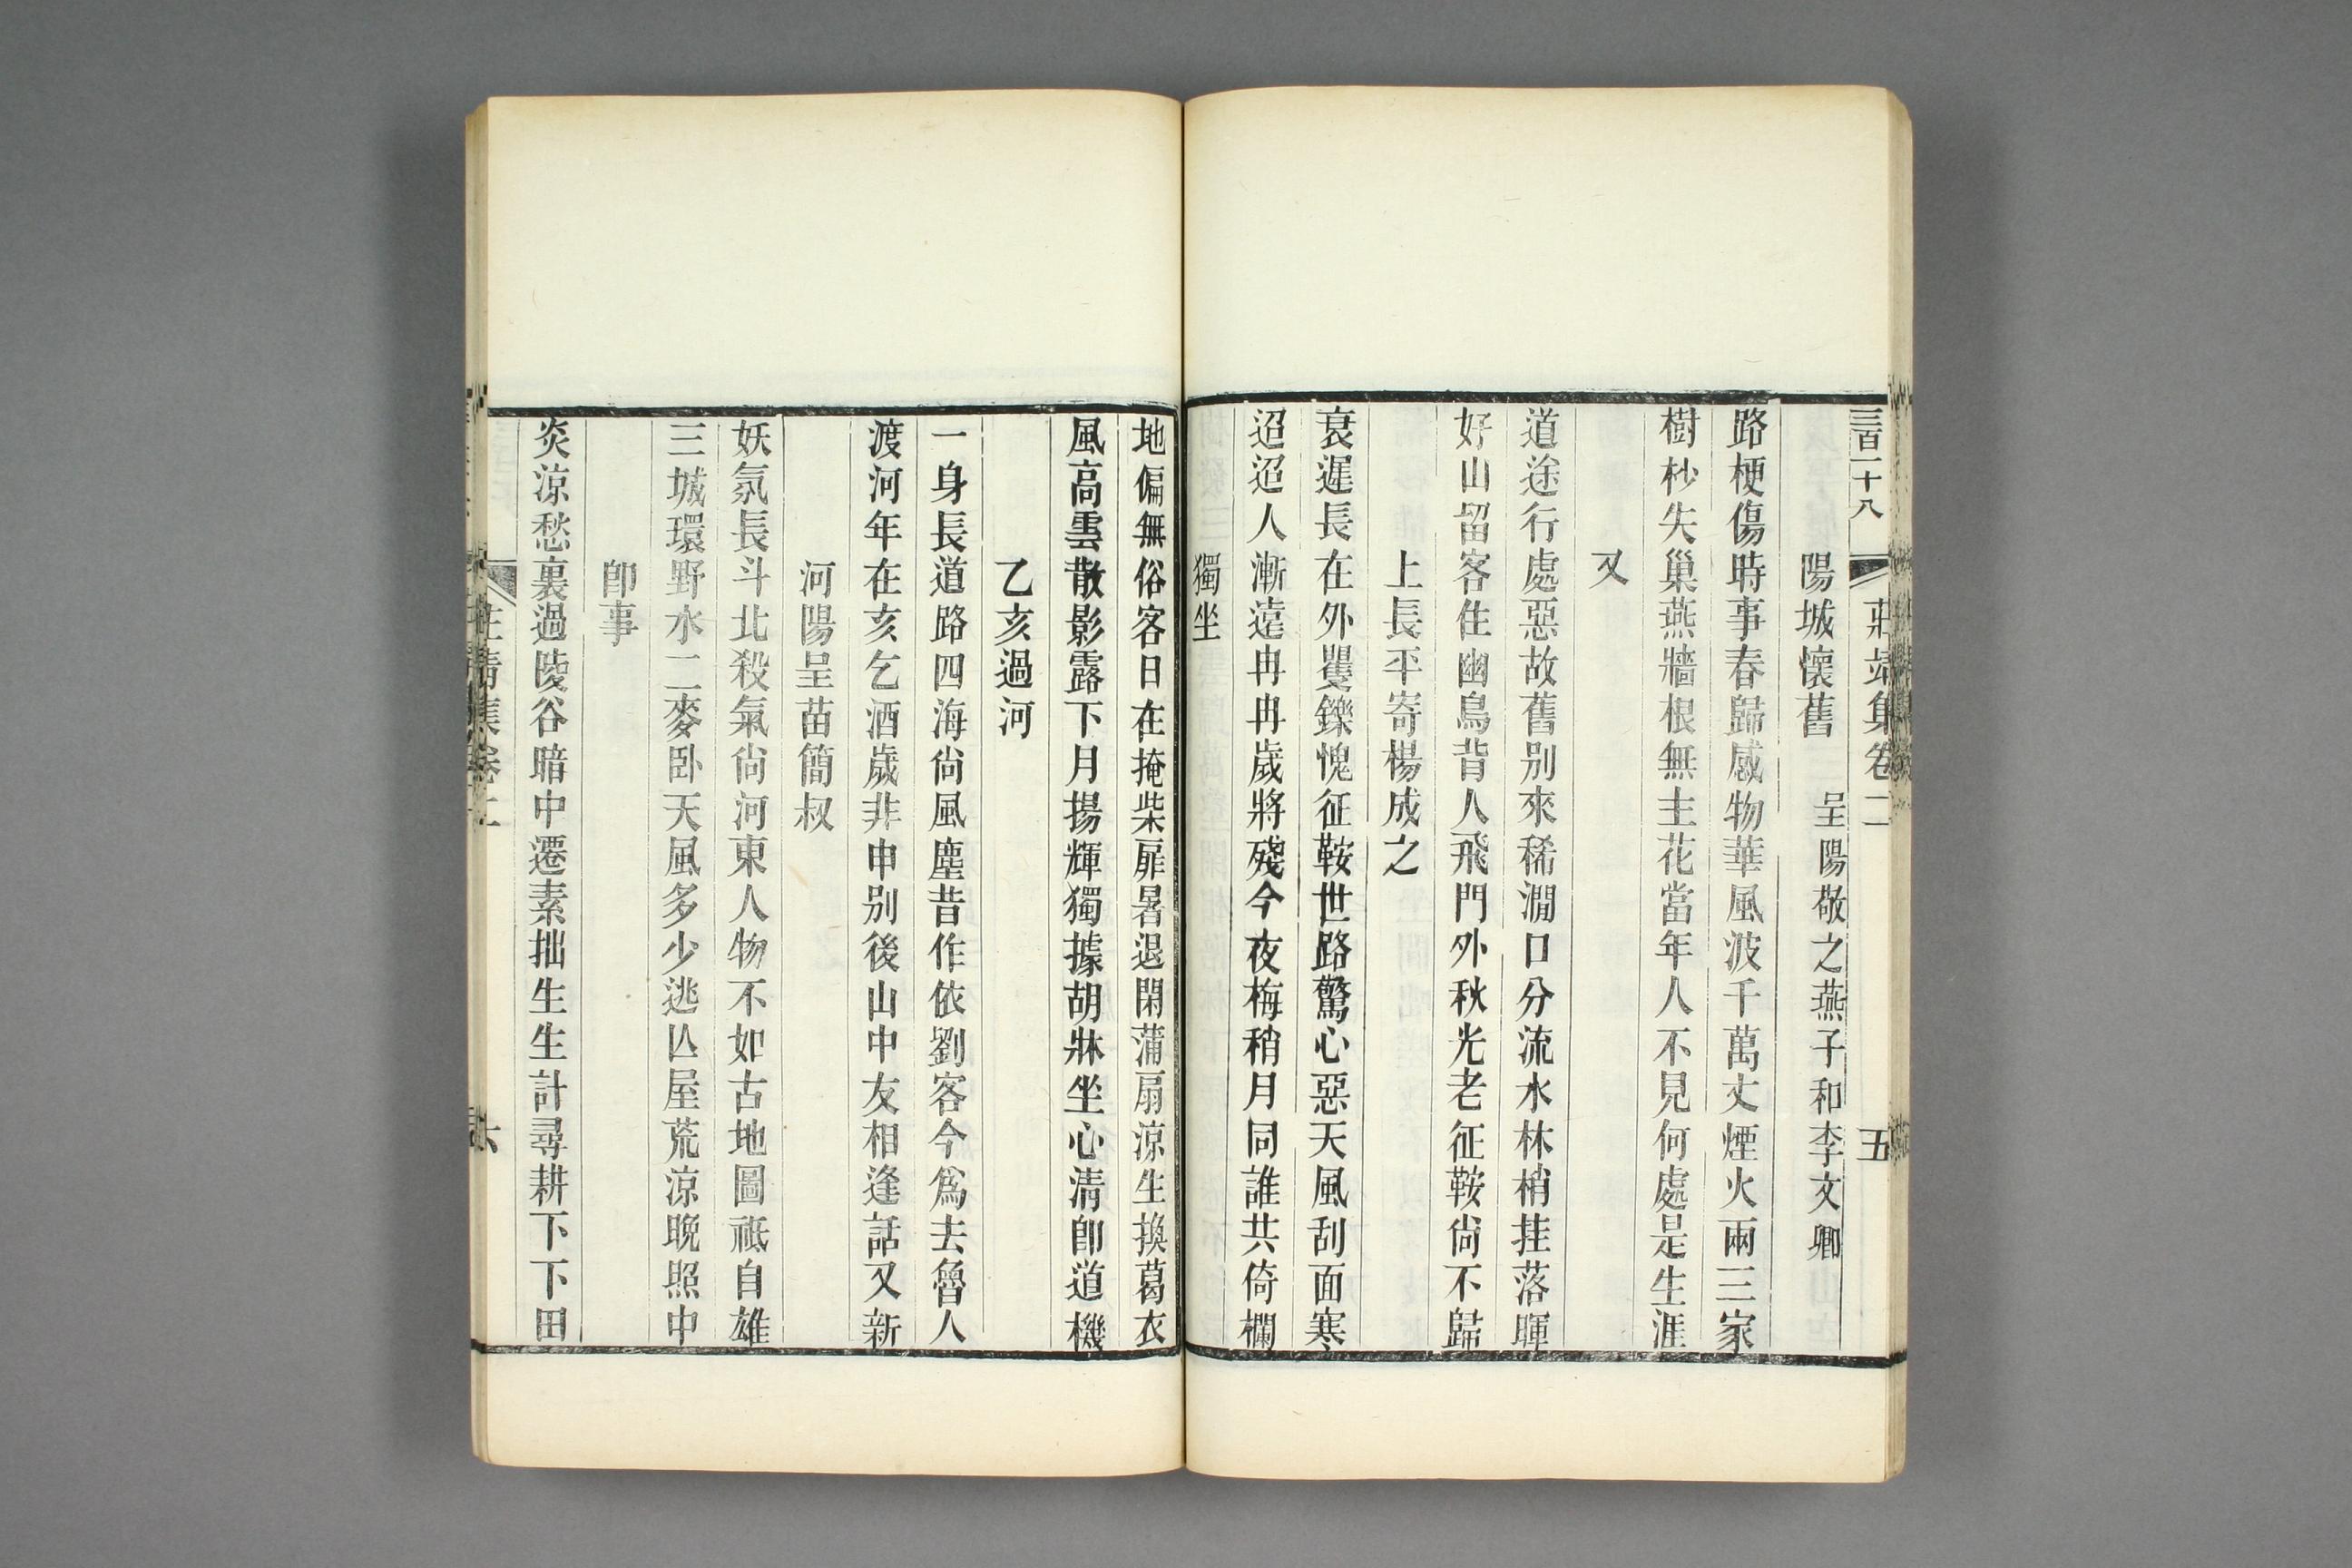 三百二十八
莊靖集卷二
五
陽城懷舊 呈陽敬之燕子和李文卿
路梗傷時事春歸感物華風波千萬丈煙火兩三家
樹杪失巢燕牆根無主花當年人不見何處是生涯
又
道途行處惡故舊别來稀澗口分流水林梢挂落暉
好山留客住幽鳥背人飛門外秋光老征鞍尙不歸
上長平寄楊成之
衰遲長在外矍鑠愧征鞍世路驚心惡天風刮面寒
迢迢人漸遠冉冉歲將殘今夜梅稍月同誰共倚欄
獨坐
地偏無俗客日在掩柴扉暑退閑蒲扇涼生換葛衣
風高雲散影露下月揚輝獨據胡牀坐心淸卽道機
乙亥過河
一身長道路四海尙風塵昔作依劉客今爲去魯人
渡河年在亥乞酒歲非申别後山中友相逢話又新
河陽呈苗簡叔
妖氛長斗北殺氣尙河東人物不如古地圖祗自雄
三城環野水二麥卧天風多少逃亾屋荒涼晚照中
卽事
炎涼愁裏過陵谷暗中遷素拙生生計尋耕下下田
莊靖集卷二
六